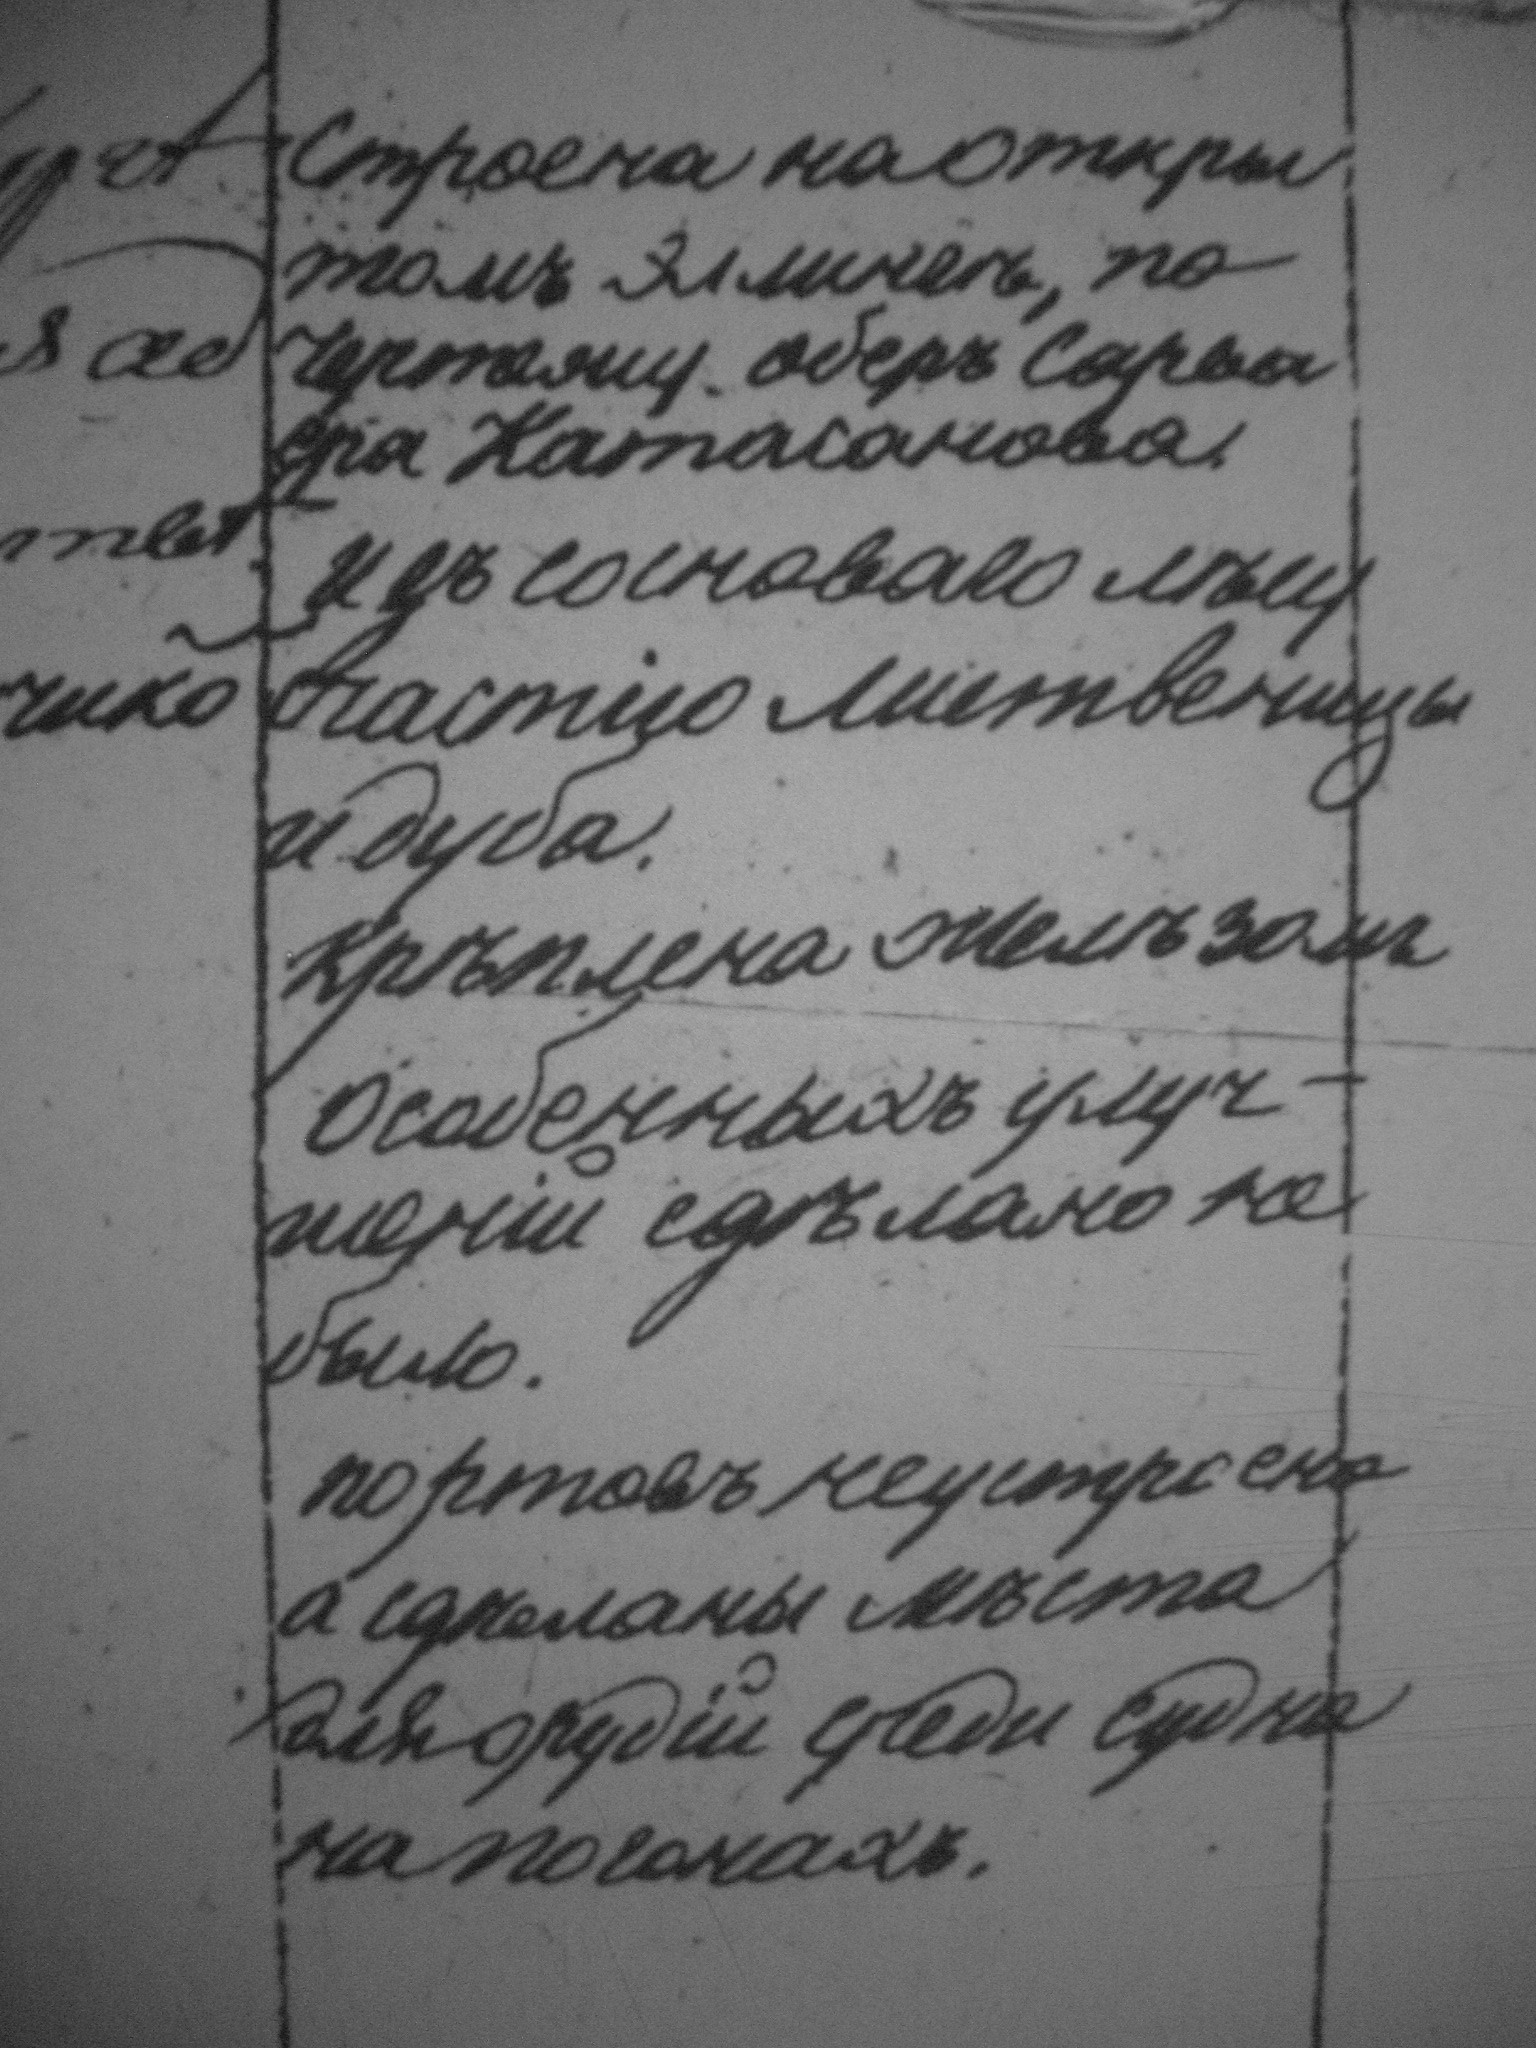 Строена на откры
томъ Эллингѣ, по
чертяжу оберъ Сарва
ера Катасанова.
Изъ сосноваго лѣсу
частiю лиственицы
и дуба.
Крѣплена желѣзомъ
Особенныхъ улуч-
шенiй сдѣлано не
было.
портовъ неустроено
а сдѣланы мѣста
для орудiй среди судна
на погонахъ.